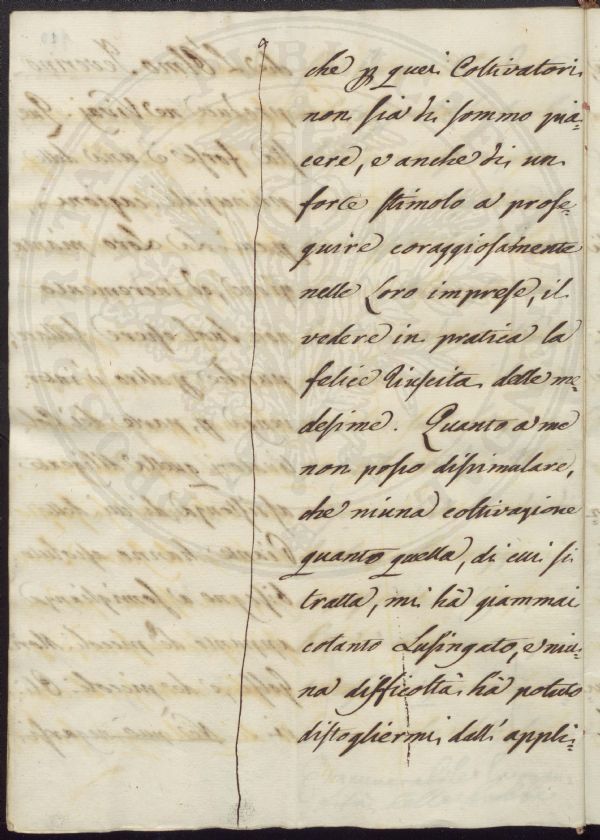 che p quei Coltivatori
non sia di sommo pia=
cere, e anche di un
forte stimolo a prose=
guire coraggiosamente
nelle Loro imprese, il
vedere in pratica la
felice riuscita delle me=
desime. Quanto a me
non posso dissimulare,
che niuna coltivazione
quanto quella, di cui si
tratta, mi hà giammai
cotanto Lusingato, e niu=
na difficoltà hà potuto
distogliermi dall' appli=